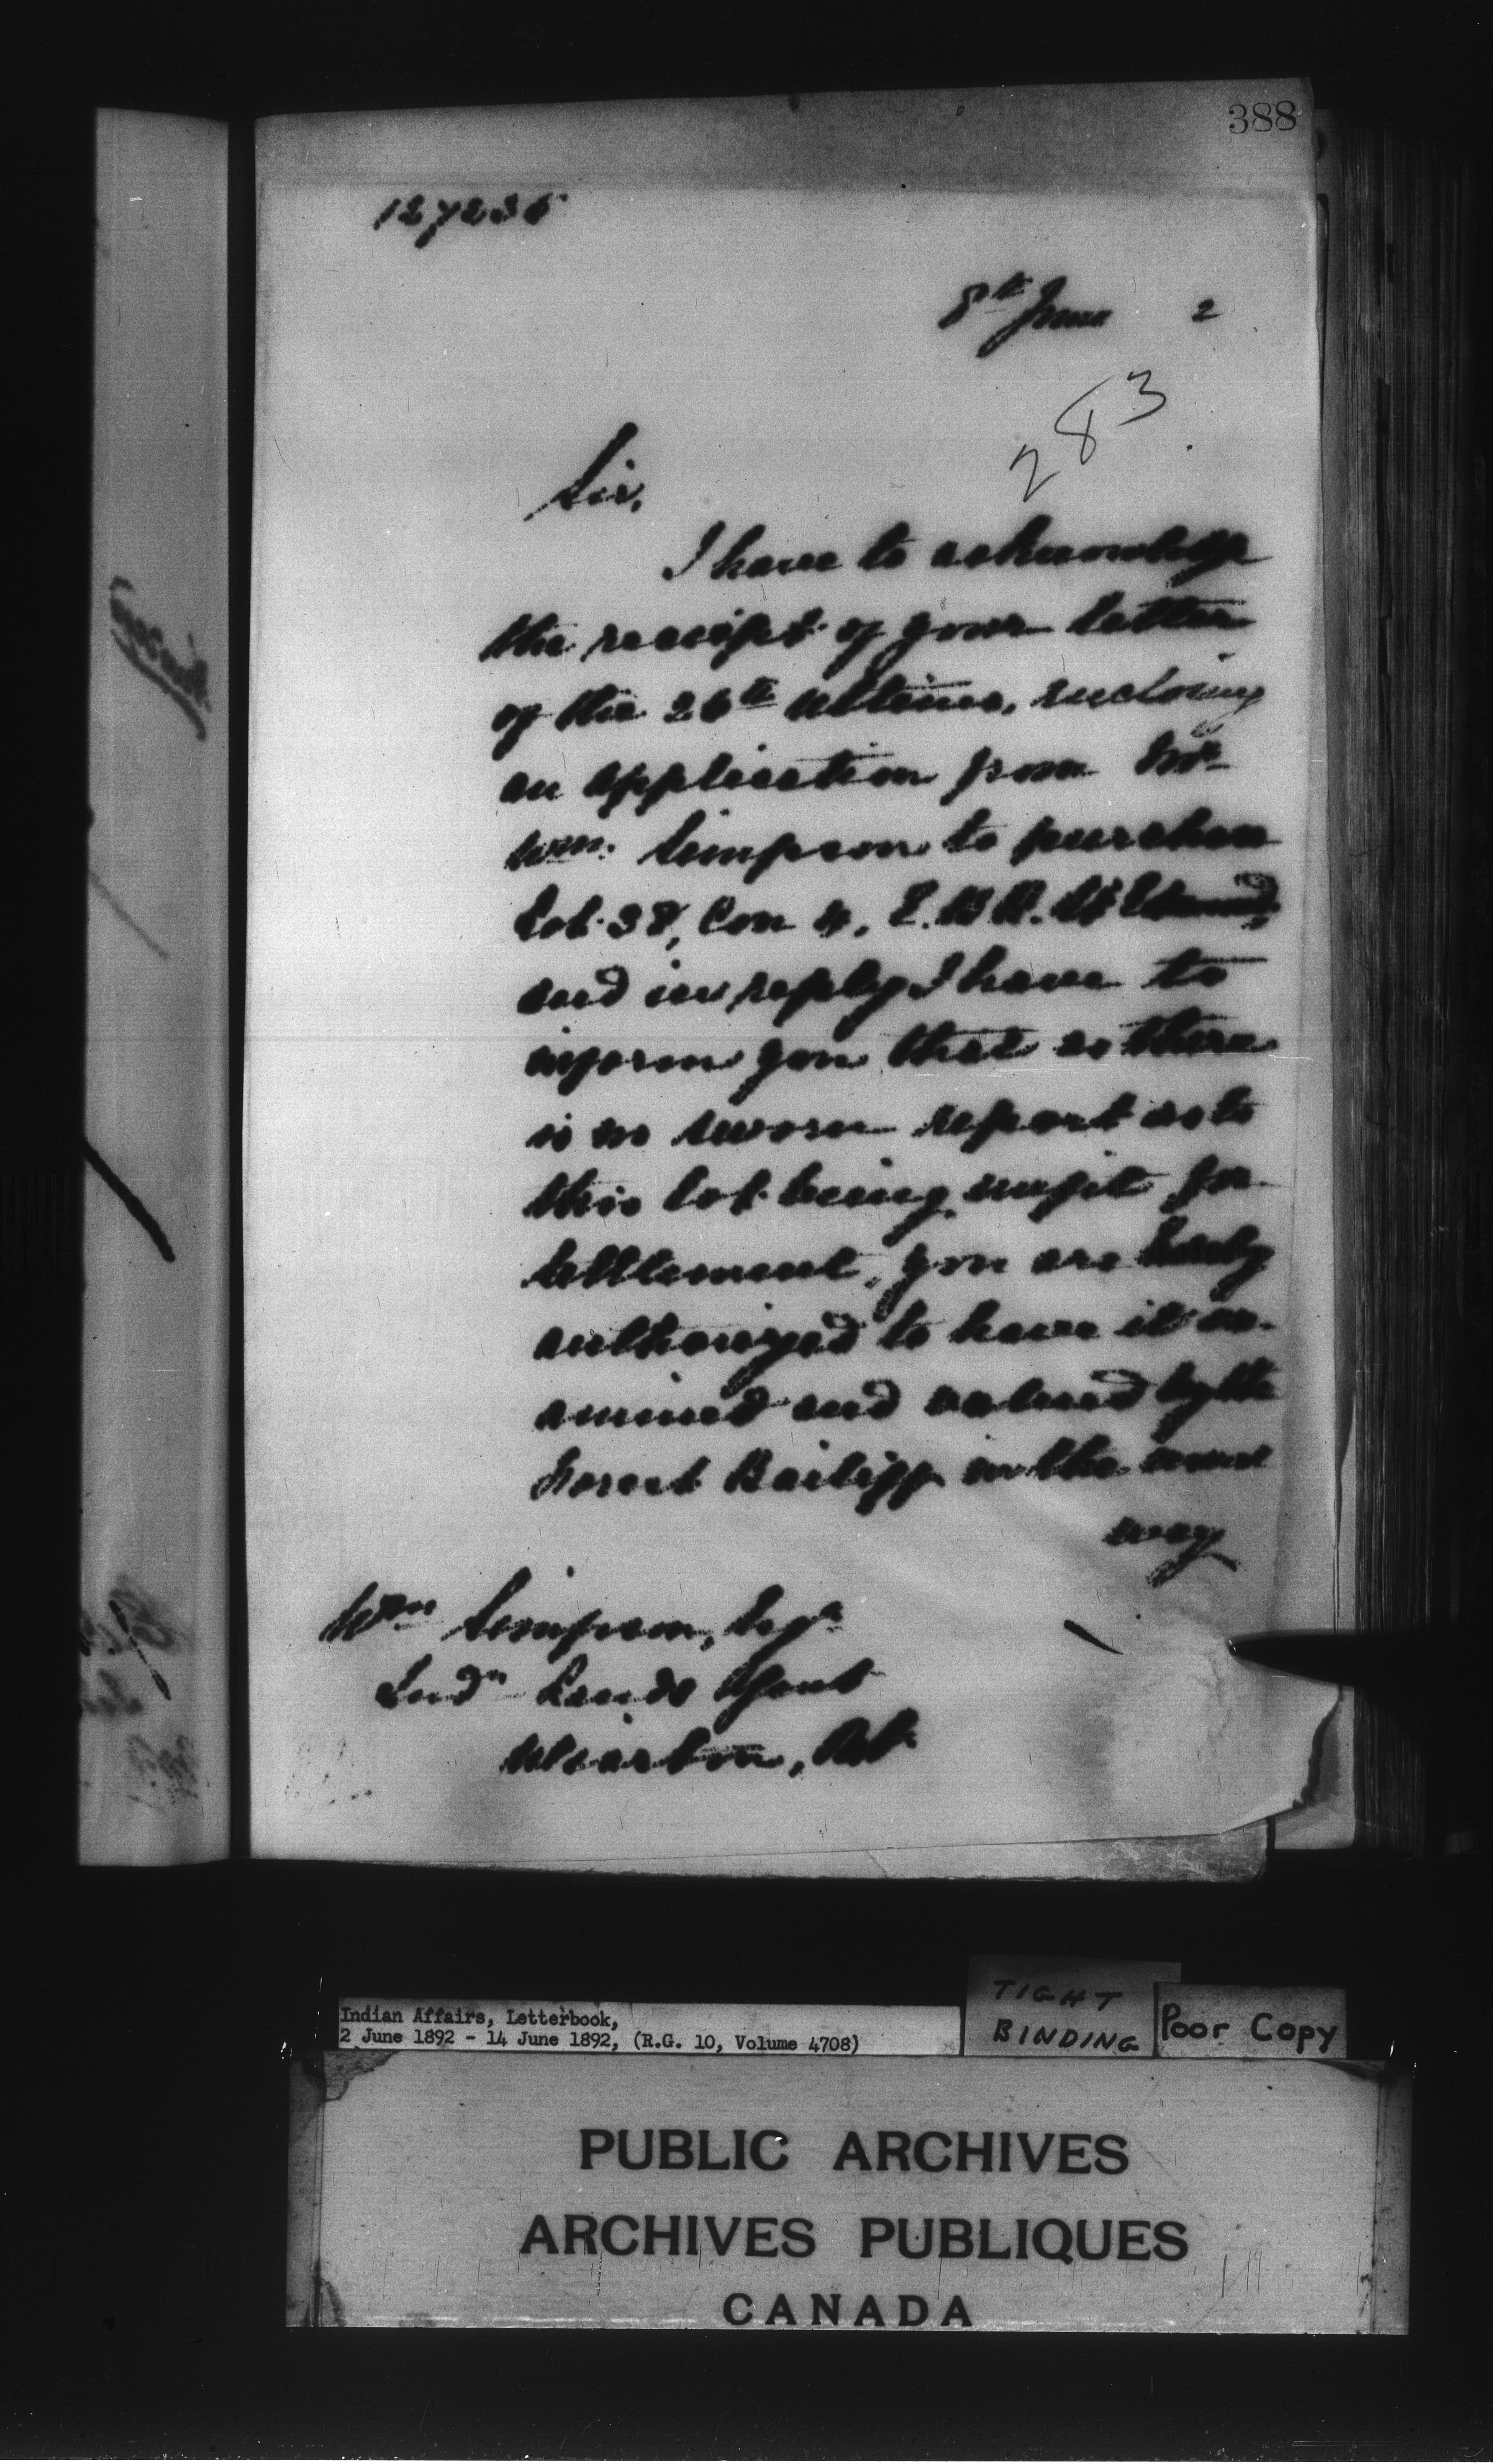 388
127236
8th June 2
283
Sir,
I have to acknowledge
the receipt of your letter
of the 26th ultimo, enclosing
an application from Mr
Wm. Simpson to purchase
Lot 38, Con 4, E.B.R. St Edmund,
and in reply I have to
inform you that as there
is no sworn report as to
this lot being unfit for
settlement, you are hereby
authorized to have it ex-
amined and valued by the
Forest Bailiff in the usual
way
Wm Simpson, Esqr
Indn Lands Agent
Wiarton, Ont.
Indian Affairs, Letterbook,
2 June 1892 - 14 June 1892, (R.G. 10, Volume 4708)
TIGHT
BINDING
Poor Copy
PUBLIC ARCHIVES
ARCHIVES PUBLIQUES
CANADA